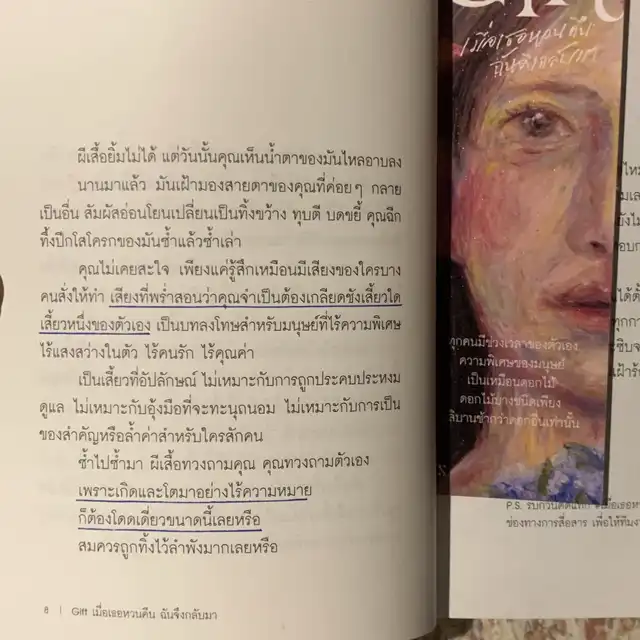 ผีเสื้อยิ้มไม่ได้ แต่วันนั้นคุณเห็นน้ำตาของมันไหลอาบลง
นานมาแล้ว มันเฝ้ามองสายตาของคุณที่ค่อยๆ กลาย
เป็นอื่น สัมผัสอ่อนโยนเปลี่ยนเป็นทิ้งขว้าง ทุบตี บดขยี้ คุณฉีก
ทึ้งปีกโสโครกของมันซ้ำแล้วซ้ำเล่า
คุณไม่เคยสะใจ เพียงแค่รู้สึกเหมือนมีเสียงของใครบาง
คนสั่งให้ทำ เสียงที่พร่ำสอนว่าคุณจำเป็นต้องเกลียดชังเสี้ยวใด
เสี้ยวหนึ่งของตัวเอง เป็นบทลงโทษสำหรับมนุษย์ที่ไร้ความพิเศษ
ไร้แสงสว่างในตัว ไร้คนรัก ไร้คุณค่า
เป็นเสี้ยวที่อัปลักษณ์ ไม่เหมาะกับการถูกประคบประหงม
ดูแล ไม่เหมาะกับอุ้งมือที่จะทะนุถนอม ไม่เหมาะกับการเป็น
ของสำคัญหรือล้ำค่าสำหรับใครสักคน
ซ้ำไปซ้ำมา ผีเสื้อทวงถามคุณ คุณทวงถามตัวเอง
เพราะเกิดและโตมาอย่างไร้ความหมาย
ก็ต้องโดดเดี่ยวขนาดนี้เลยหรือ
สมควรถูกทิ้งไว้ลำพังมากเลยหรือ
8 | Gift เมื่อเธอหวนคืน ฉันจึงกลับมา
Gift
เมื่อเธอหวนคืน
ฉันจึงกลับมา
ทุกคนมีช่วงเวลาของตัวเอง
ความพิเศษของมนุษย์
เป็นเหมือนดอกไม้
ดอกไม้บางชนิดเพียง
ผลิบานช้ากว่าดอกอื่นเท่านั้น
P.S.
ช่องทางการสื่อสาร เพื่อให้ทีมงา